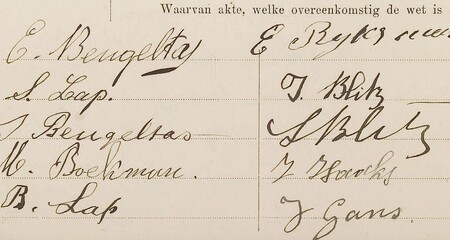 Waarvan akte, welke overeenkomstig de wet is
E. Bengeltas
S. Lap.
S Bengeltas
M. Boekman.
B. Lap
E
J. Blitz
S Blitz
J Gans.